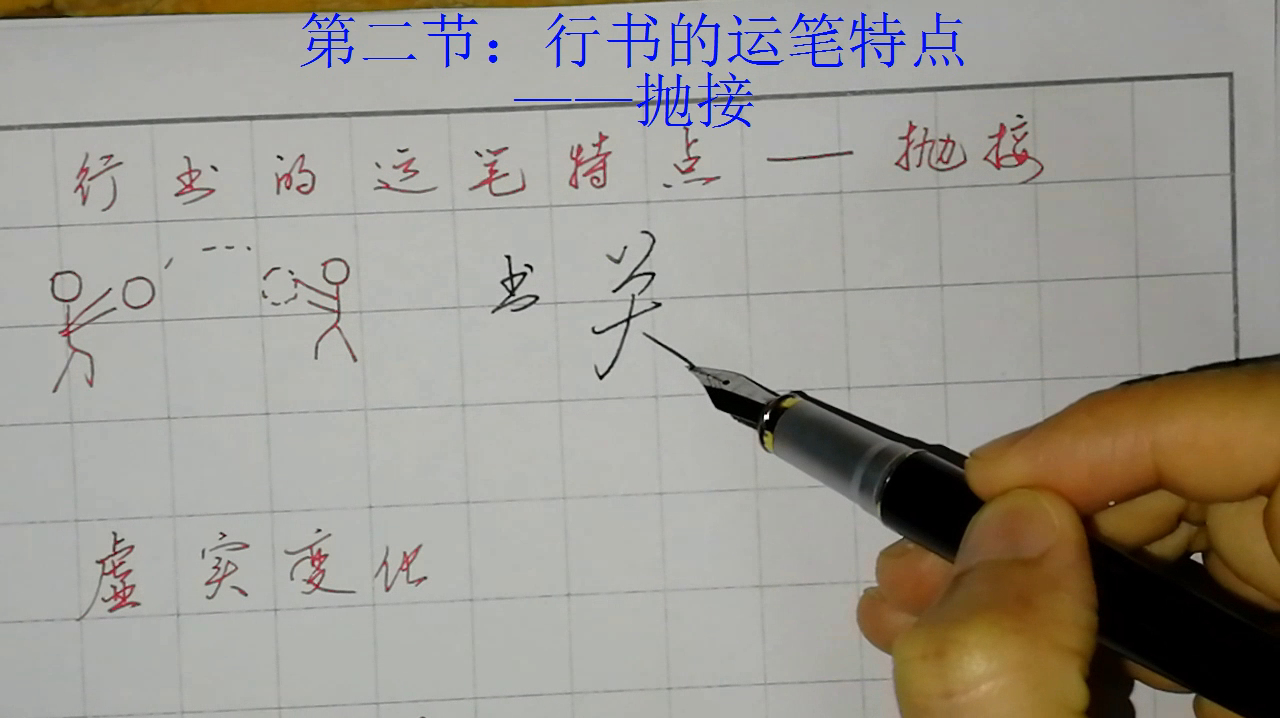 第二节：行书的运笔特点
———抛接
行书的运笔特点—抛接
书关
虚实变化